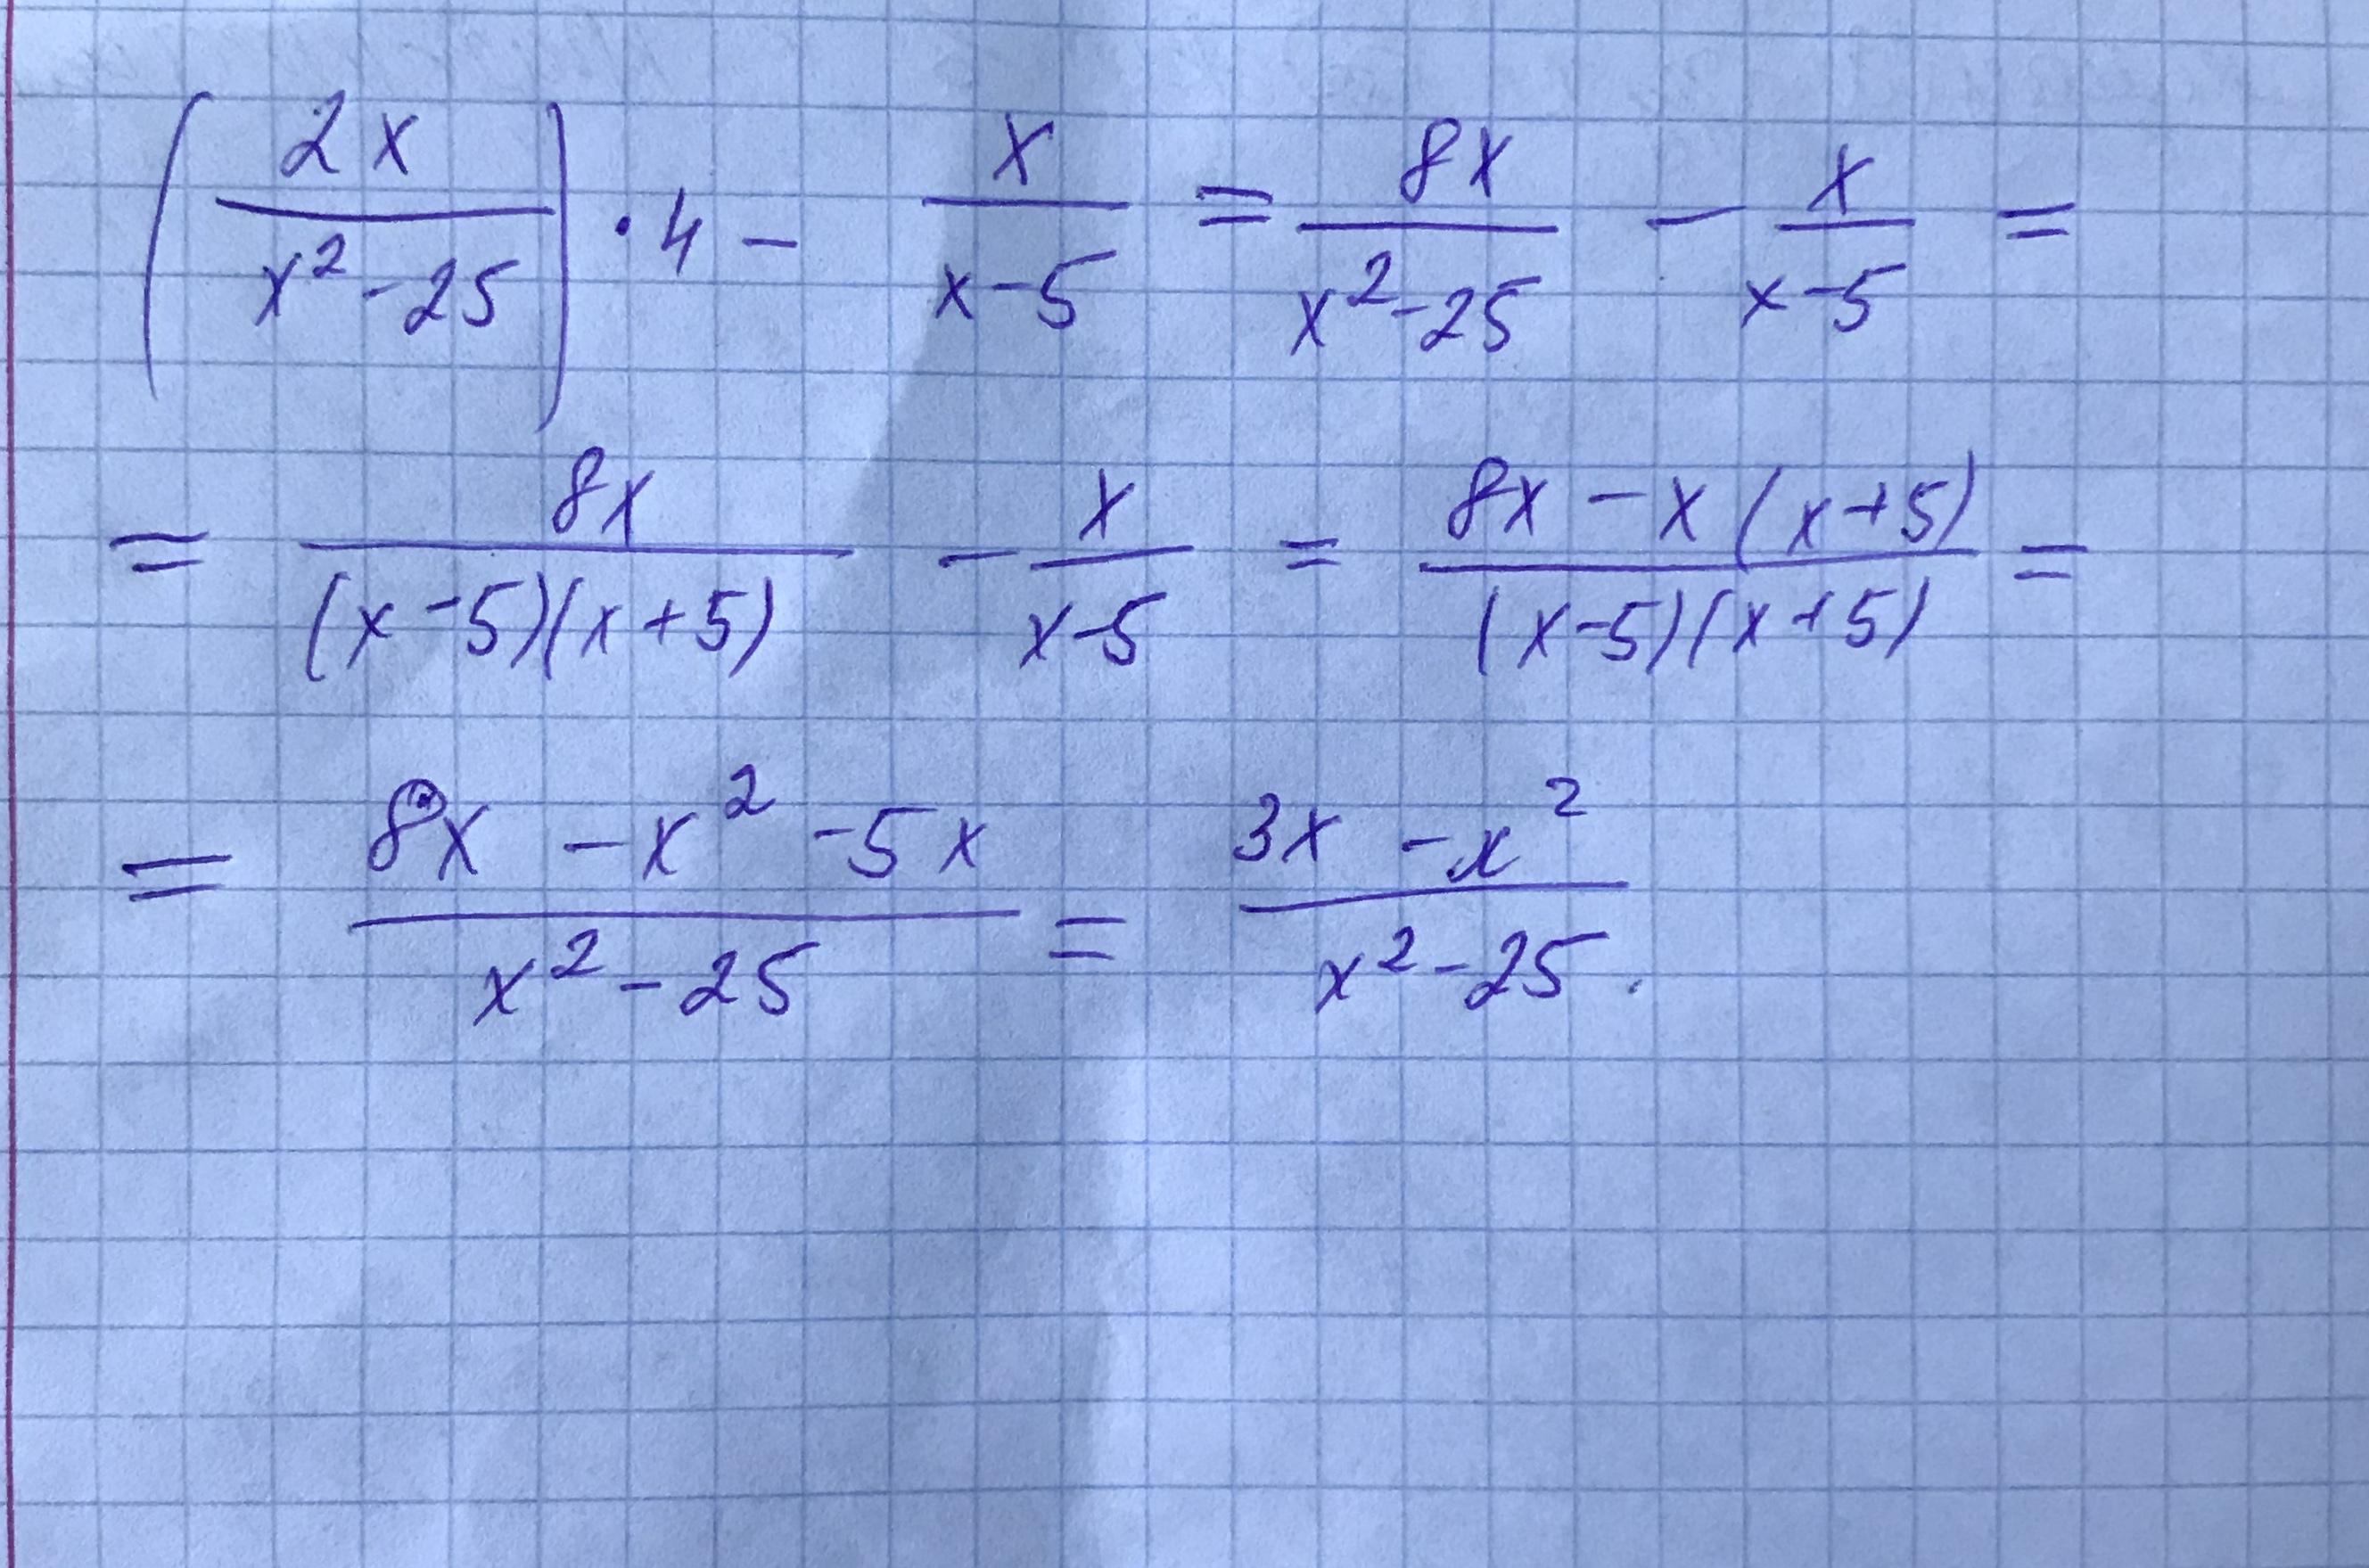 (2x / (x² - 25)) · 4 - x / (x - 5) = 8x / (x² - 25) - x / (x - 5) =
= 8x / ((x - 5)(x + 5)) - x / (x - 5) = (8x - x(x + 5)) / ((x - 5)(x + 5)) =
= (8x - x² - 5x) / (x² - 25) = (3x - x²) / (x² - 25).